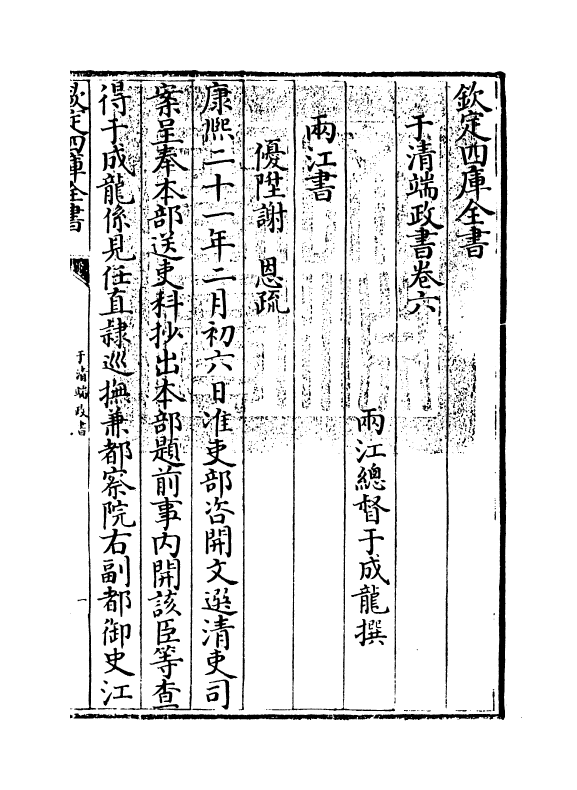 欽定四庫全書
于清端政書卷六
兩江總督于成龍撰
兩江書
優陞謝 恩疏
康熙二十一年二月初六日准吏部咨開文選清吏司
案呈奉本部送吏科抄出本部題前事内開該臣等查
得于成龍係見任直隷巡撫兼都察院右副都御史江
欽定四庫全書
于清端政書
一